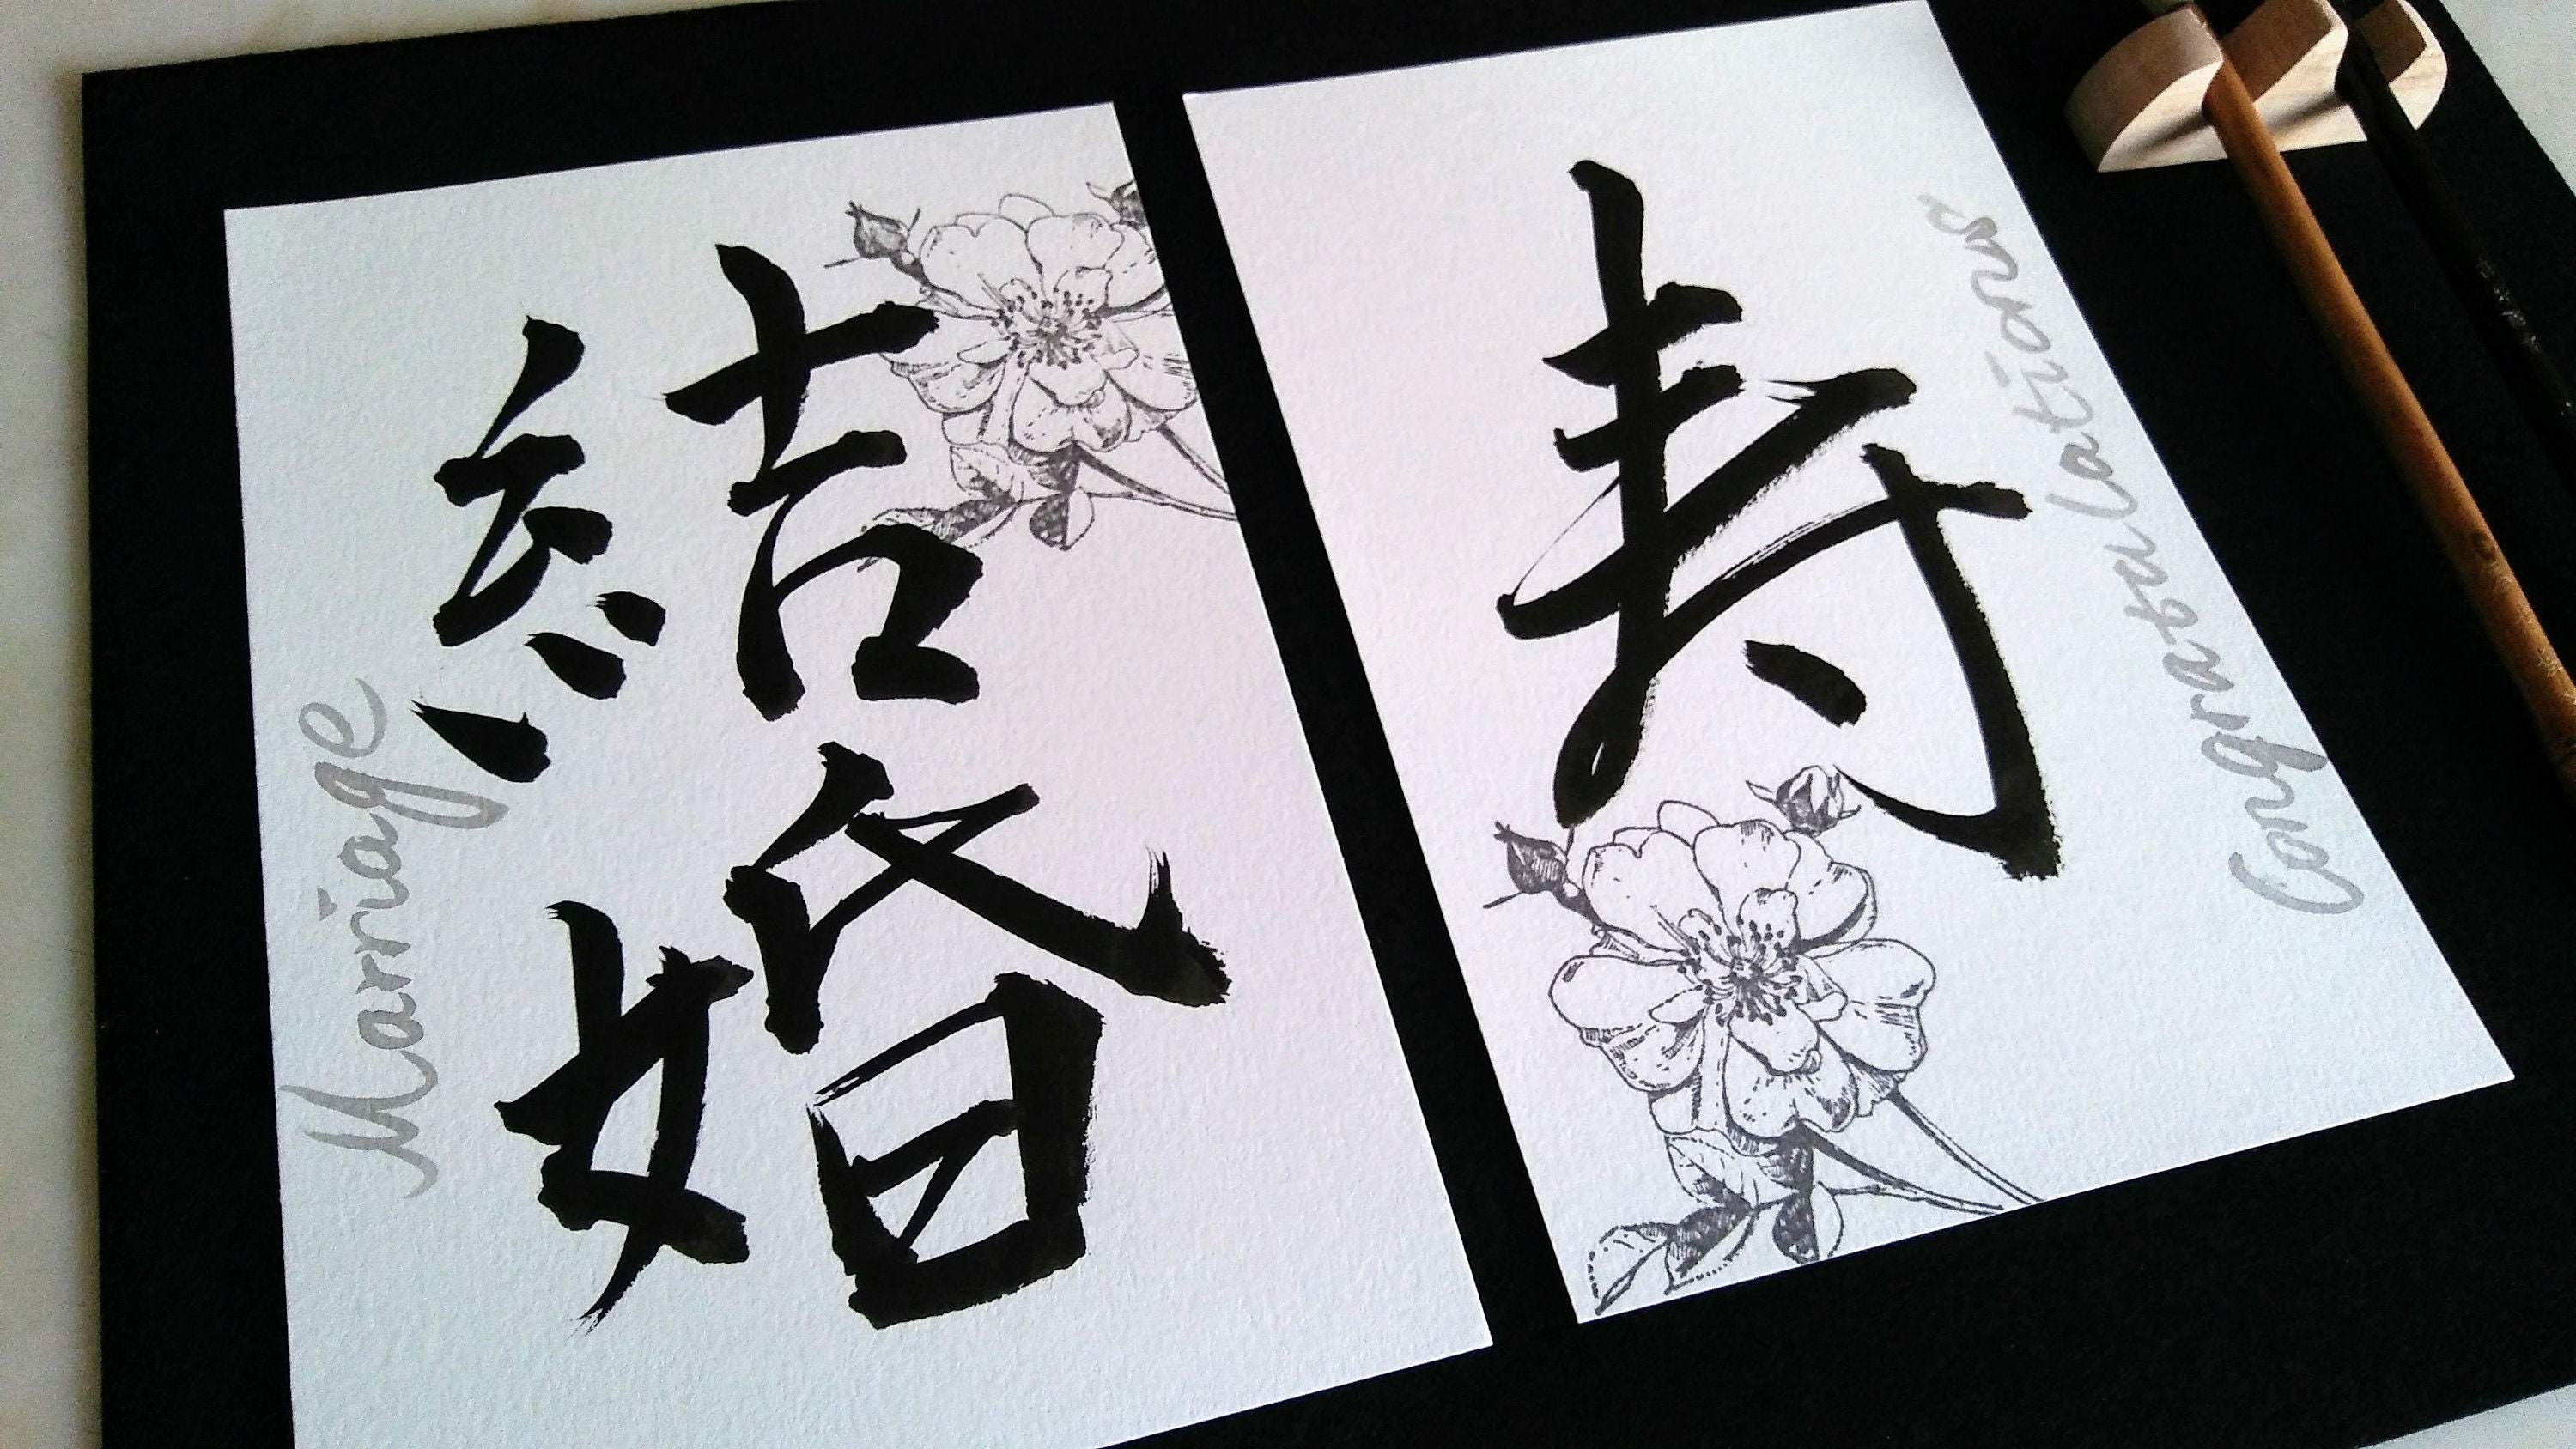 結婚
Marriage
寿
Congratulations